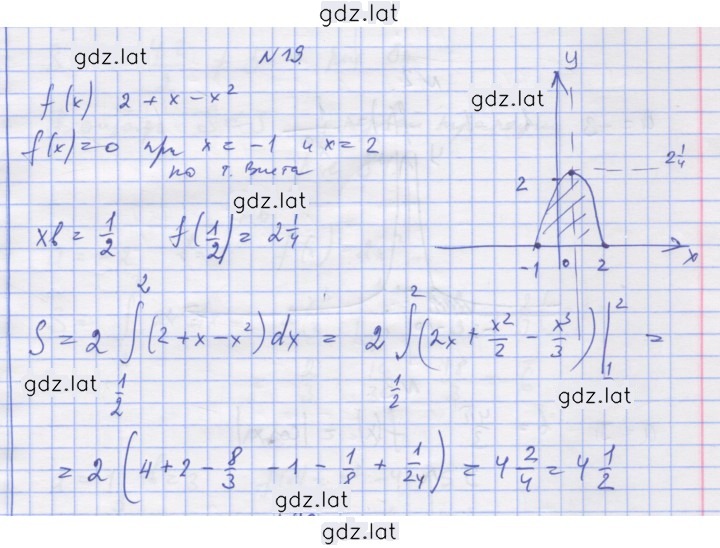 gdz.lat
gdz.lat
N 19
y
f(x) 2 + x - x²
gdz.lat
f(x) = 0 при x = -1 и x = 2
по т. Виета
2 1/4
2
gdz.lat
xв = 1/2 f(1/2) = 2 1/4
-1 0 2 x
S = 2 ∫_{1/2}^{2} (2 + x - x²) dx = 2 ∫_{1/2}^{2} (2x + x²/2 - x³/3) |_{1/2}^{2} =
gdz.lat
gdz.lat
= 2 (4 + 2 - 8/3 - 1 - 1/8 + 1/24) = 4 2/4 = 4 1/2
gdz.lat
gdz.lat